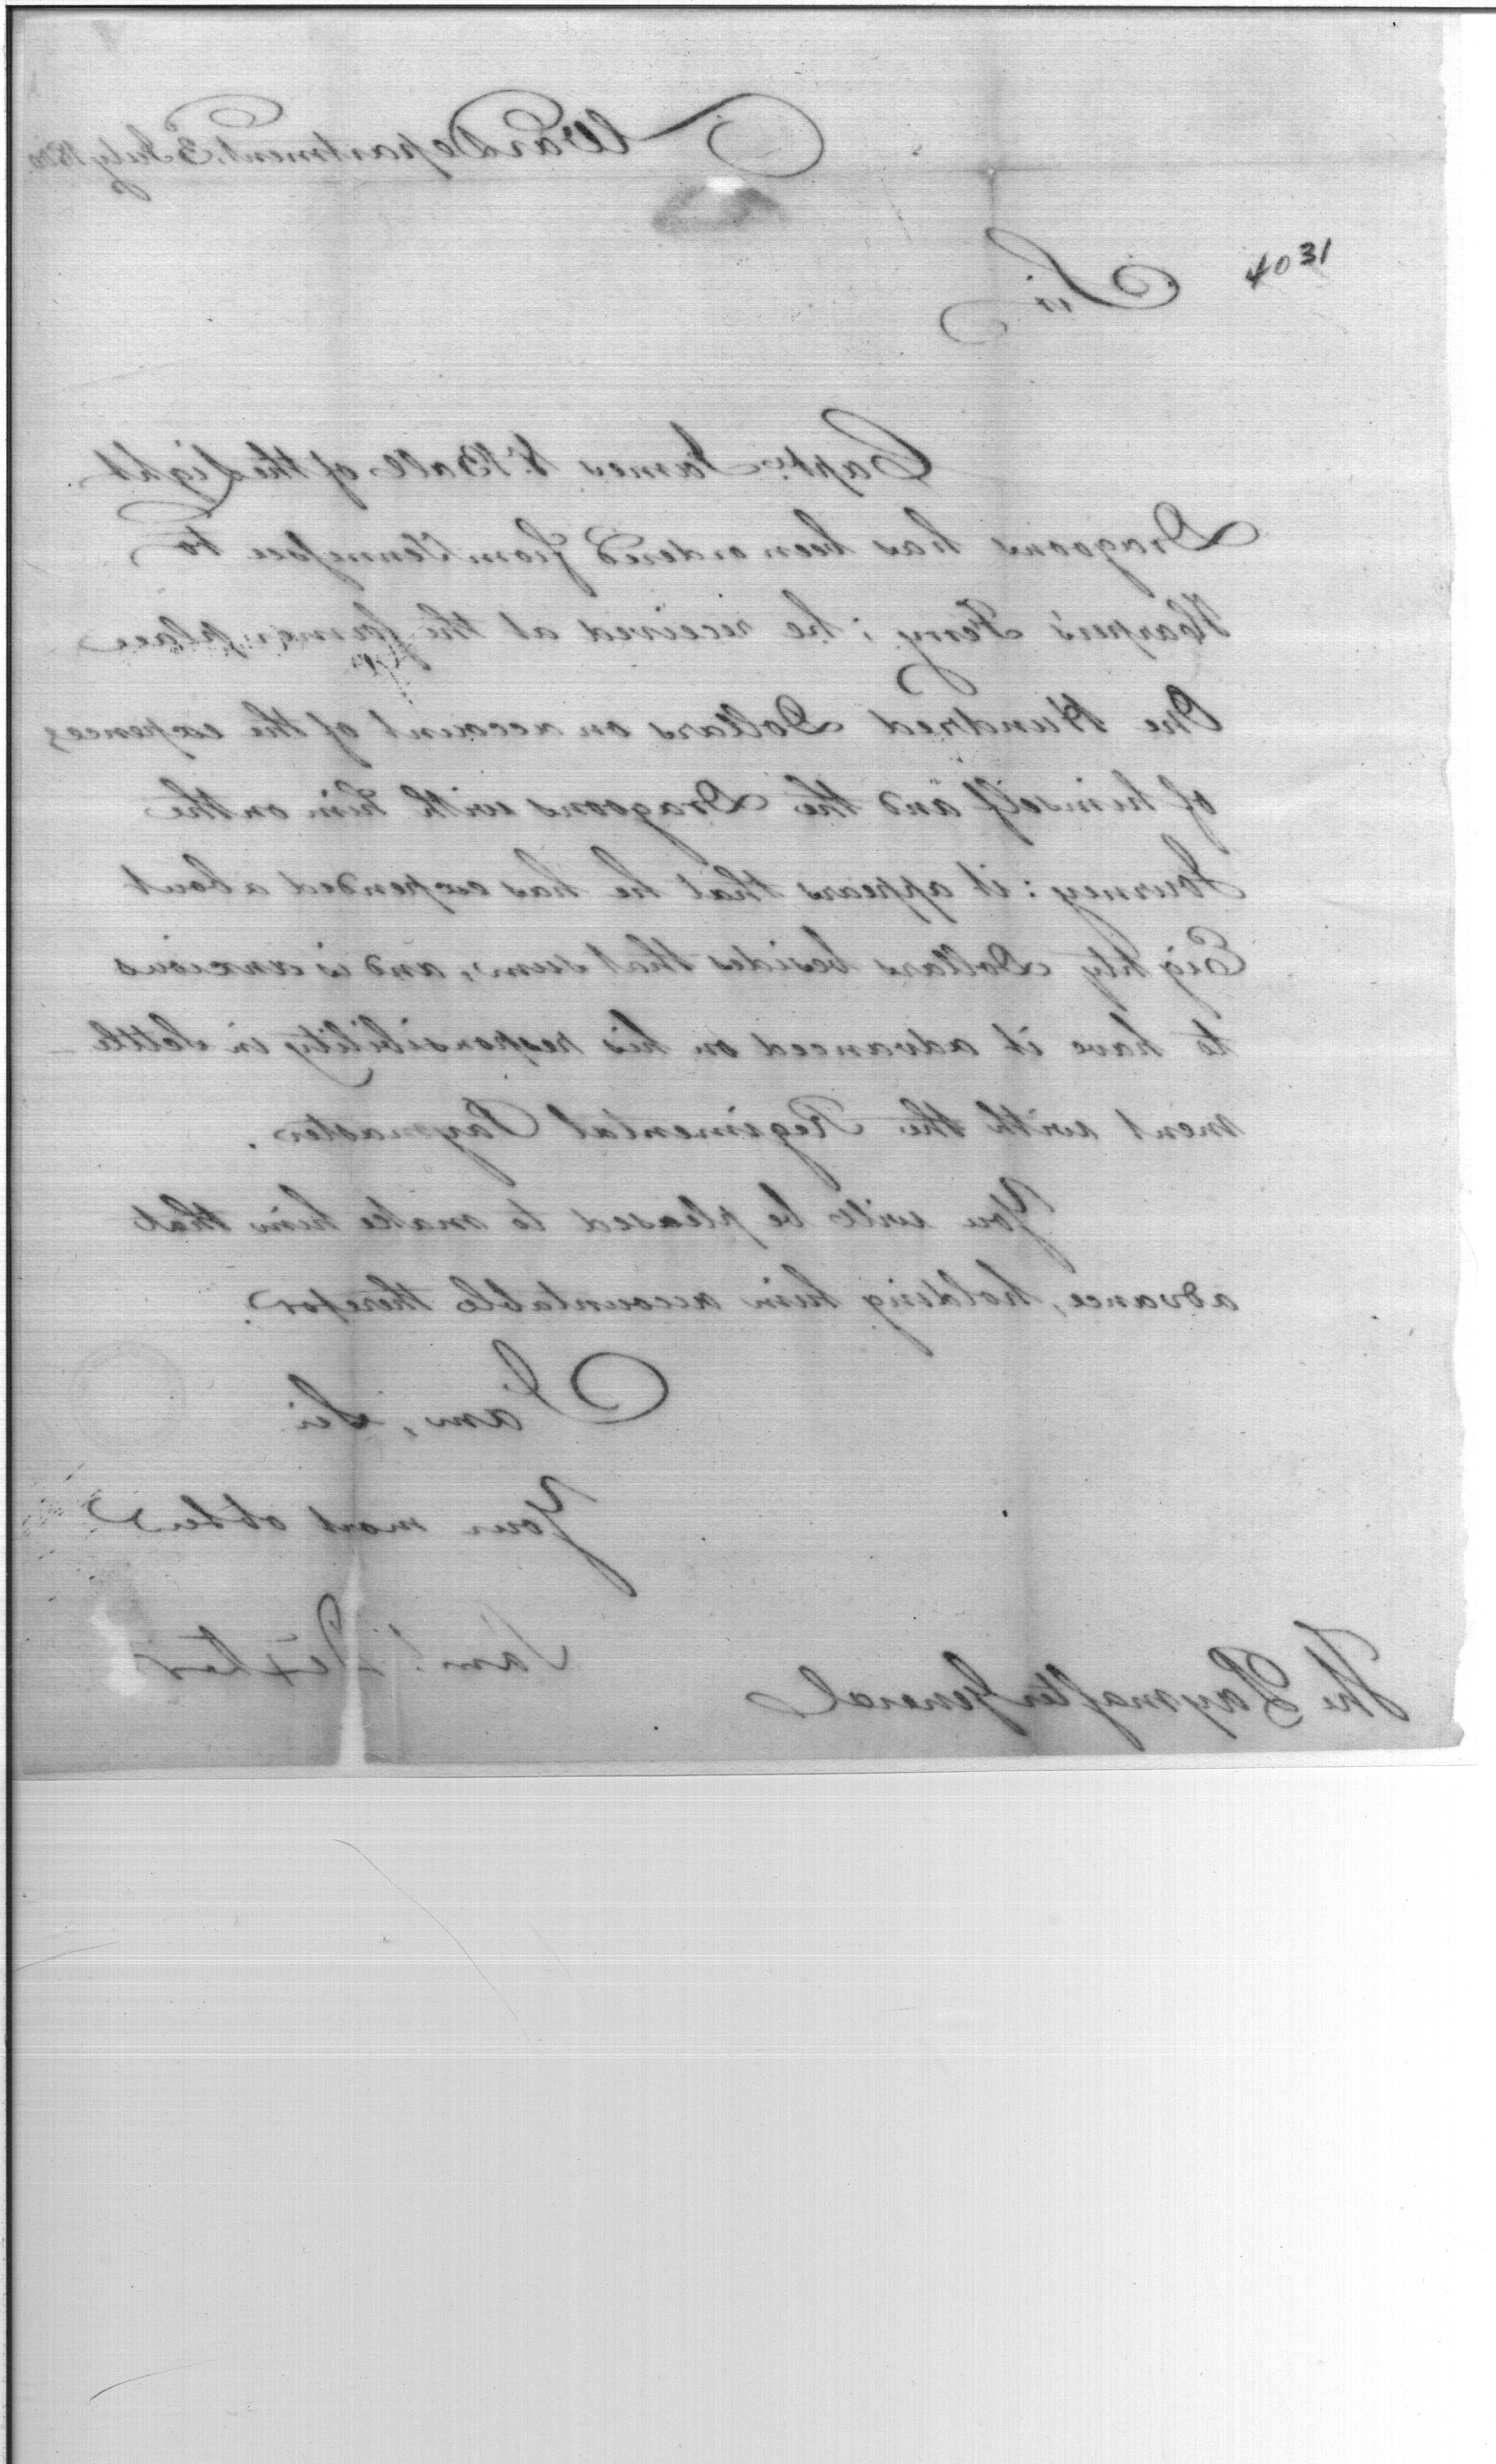 War Department, 3 July 1800
4031
Sir
Capt. James V. Ball of the Light
Dragoons has been ordered from Tennessee to
Harper's Ferry; he received at the former place
One Hundred Dollars on account of the expences
of himself and the Dragoons with him on the
Journey: it appears that he has expended about
Eighty Dollars besides that sum, and is anxious
to have it advanced on his responsibility in settle-
ment with the Regimental Paymaster.
You will be pleased to make him that
advance, holding him accountable therefor.
I am, Sir
Your most ob Serv
Saml. Dexter
The Paymaster General